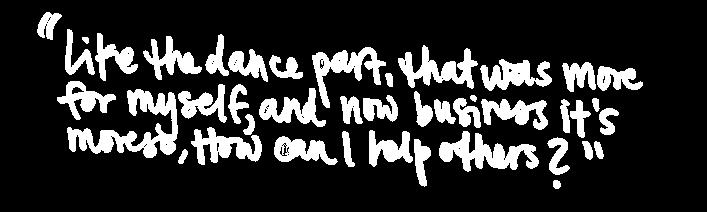 "Like the dance part, that was more
for myself, and now business it's
moreso, How can I help others?"